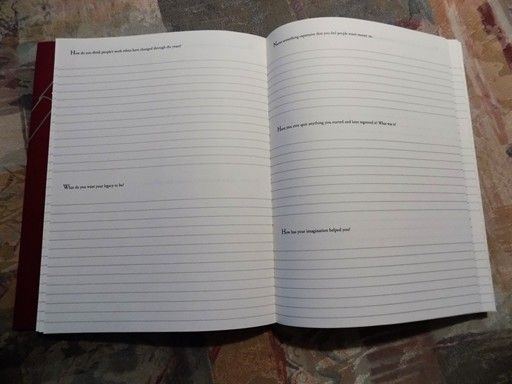 How do you think people's work ethics have changed through the years?
What do you want your legacy to be?
Name something expensive that you feel people waste money on.
Have you ever quit anything you started and later regretted it? What was it?
How has your imagination helped you?